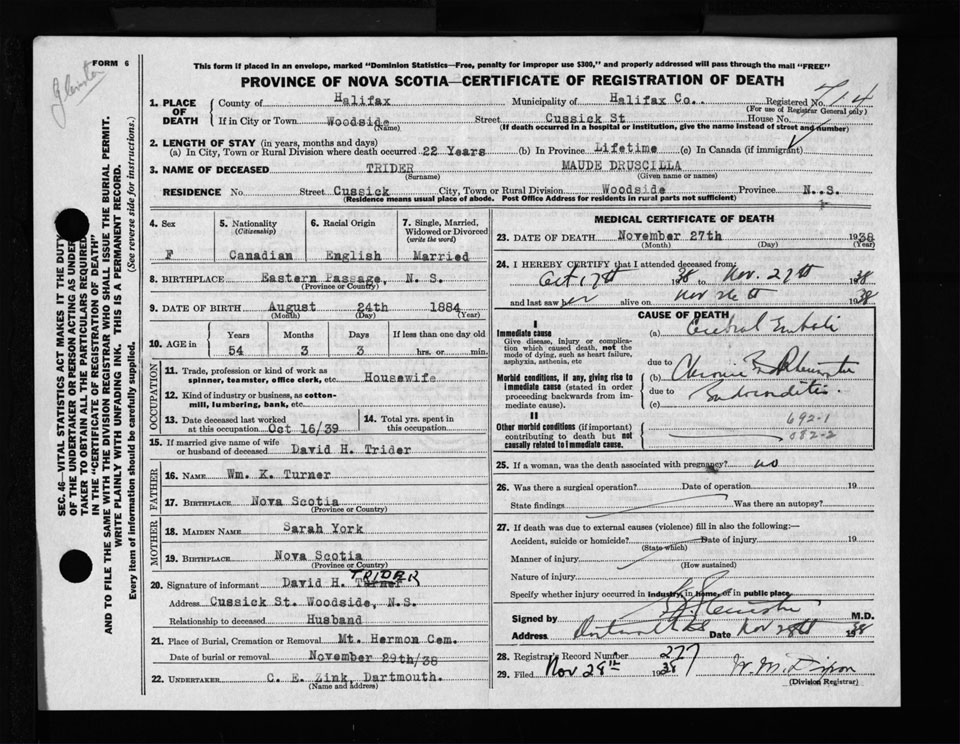 FORM 6
This form if placed in an envelope, marked "Dominion Statistics—Free, penalty for improper use $300," and properly addressed will pass through the mail "FREE"
PROVINCE OF NOVA SCOTIA—CERTIFICATE OF REGISTRATION OF DEATH
SEC. 46—VITAL STATISTICS ACT MAKES IT THE DUTY
OF THE UNDERTAKER OR PERSON ACTING AS UNDER-
TAKER TO OBTAIN ALL THE PARTICULARS REQUIRED
IN THE "CERTIFICATE OF REGISTRATION OF DEATH"
AND TO FILE THE SAME WITH THE DIVISION REGISTRAR WHO SHALL ISSUE THE BURIAL PERMIT.
WRITE PLAINLY WITH UNFADING INK. THIS IS A PERMANENT RECORD.
Every item of information should be carefully supplied. (See reverse side for instructions.)
1. PLACE OF DEATH County of Halifax Municipality of Halifax Co.. Registered No. 714
(For use of Registrar General only)
If in City or Town Woodside Street Cussick St House No.
(Name) (If death occurred in a hospital or institution, give the name instead of street and number)
2. LENGTH OF STAY (in years, months and days)
(a) In City, Town or Rural Division where death occurred 22 Years (b) In Province Lifetime (c) In Canada (if immigrant)
3. NAME OF DECEASED TRIDER MAUDE DRUSCILLA
(Surname) (Given name or names)
RESIDENCE No. Street Cussick City, Town or Rural Division Woodside Province N..S.
(Residence means usual place of abode. Post Office Address for residents in rural parts not sufficient)
4. Sex 5. Nationality (Citizenship) 6. Racial Origin 7. Single, Married, Widowed or Divorced (write the word)
F Canadian English Married
8. BIRTHPLACE Eastern Passage, N. S.
(Province or Country)
9. DATE OF BIRTH August 24th 1884
(Month) (Day) (Year)
10. AGE in Years Months Days If less than one day old
54 3 3 hrs. or min.
OCCUPATION
11. Trade, profession or kind of work as spinner, teamster, office clerk, etc. Housewife
12. Kind of industry or business, as cotton-mill, lumbering, bank, etc.
13. Date deceased last worked at this occupation Oct 16/39 14. Total yrs. spent in this occupation
15. If married give name of wife or husband of deceased David H. Trider
FATHER
16. NAME Wm. K. Turner
17. BIRTHPLACE Nova Scotia
(Province or Country)
MOTHER
18. MAIDEN NAME Sarah York
19. BIRTHPLACE Nova Scotia
(Province or Country)
20. Signature of informant David H. Turner TRIDER
Address Cussick St. Woodside, N.S.
Relationship to deceased Husband
21. Place of Burial, Cremation or Removal Mt. Hermon Cem.
Date of burial or removal November 29th/38
22. UNDERTAKER C. E. Zink, Dartmouth.
(Name and address)
MEDICAL CERTIFICATE OF DEATH
23. DATE OF DEATH November 27th 1938
(Month) (Day) (Year)
24. I HEREBY CERTIFY that I attended deceased from:
Oct 17th 1938 to Nov. 27th 1938
and last saw her alive on Nov 26th 1938
CAUSE OF DEATH
I
Immediate cause (a) Cerebral Emboli
Give disease, injury or complication which caused death, not the mode of dying, such as heart failure, asphyxia, asthenia, etc
due to
Morbid conditions, if any, giving rise to immediate cause (stated in order proceeding backwards from immediate cause). (b) Chronic Rheumatic
due to Endocarditis
(c)
II
Other morbid conditions (if important) contributing to death but not causally related to immediate cause.
692-1
082-2
25. If a woman, was the death associated with pregnancy? no
26. Was there a surgical operation? Date of operation 19
State findings Was there an autopsy?
27. If death was due to external causes (violence) fill in also the following:—
Accident, suicide or homicide? Date of injury 19
(State which)
Manner of injury
(How sustained)
Nature of injury
Specify whether injury occurred in industry, in home, or in public place.
Signed by M.D.
Address Date Nov 28th 1938
28. Registrar's Record Number 277
29. Filed Nov 28th 1938 W. M. Dixon
(Division Registrar)